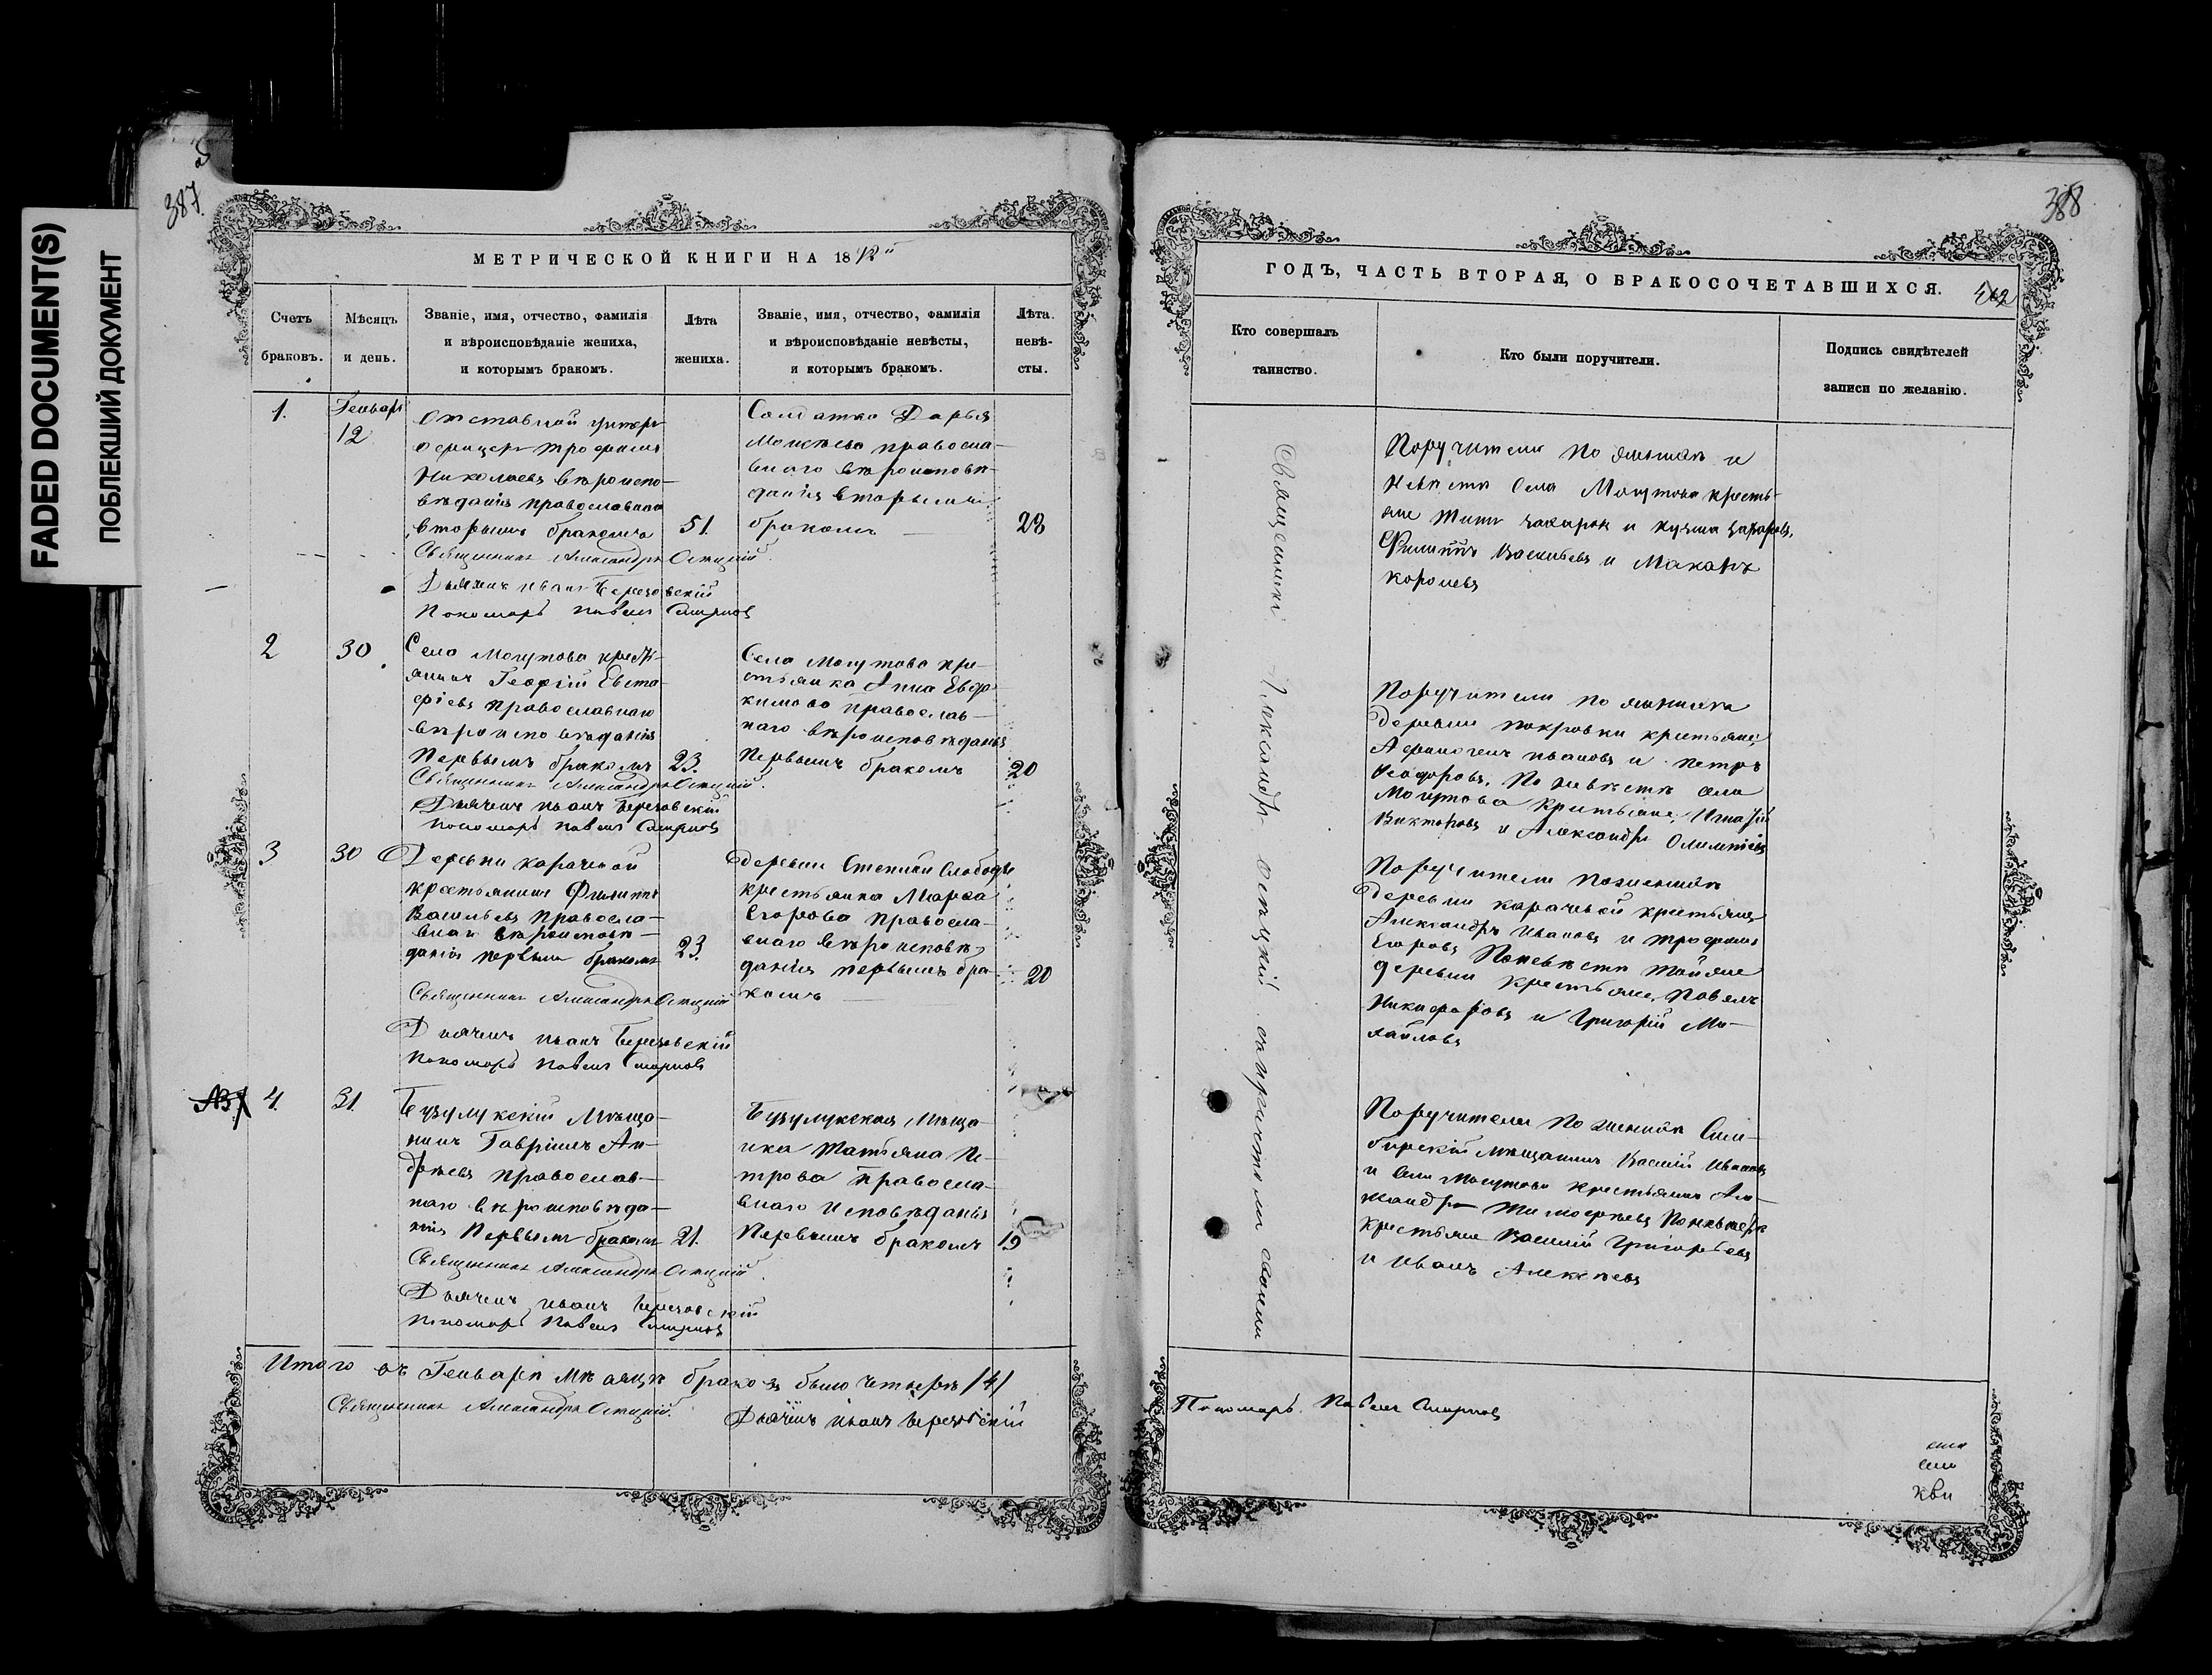 FADED DOCUMENT(S)
ПОБЛЕКШИЙ ДОКУМЕНТ
387.
МЕТРИЧЕСКОЙ КНИГИ НА 18
Счетъ браковъ.
Мѣсяцъ и день.
Званіе, имя, отчество, фамилія
и вѣроисповѣданіе жениха,
и которымъ бракомъ.
Лѣта жениха.
Званіе, имя, отчество, фамилія
и вѣроисповѣданіе невѣсты,
и которымъ бракомъ.
Лѣта невѣ-
сты.
1.
Генваря
12
Отставной унтеръ
офицеръ Трофимъ
Николаевъ вѣроиспо-
вѣданія православнаго
вторымъ бракомъ
51.
Солдатка Дарья
Моисѣева правосла-
внаго вѣроисповѣ-
данія вторымъ
бракомъ
28
Священникъ Александръ Осецкій
Дьячекъ Иванъ Березовскій
Пономарь Павелъ Смирновъ
2
30
Села Могутова крестъ-
янинъ Георгій Евста-
фіевъ православнаго
вѣроисповѣданія
Первымъ бракомъ
23.
Села Могутова кре-
стьянка Анна Евдо-
кимова православ-
наго вѣроисповѣданія
Первымъ бракомъ
20
Священникъ Александръ Осецкій.
Дьячекъ Иванъ Березовскій
Пономарь Павелъ Смирновъ
3
30
Деревни Карачевой
крестьянинъ Филиппъ
Васильевъ правосла-
внаго вѣроисповѣ-
данія первымъ бракомъ
23.
Деревни Степной Слободы
крестьянка Марѳа
Егорова правосла-
внаго вѣроисповѣ-
данія первымъ бра-
комъ
20
Священникъ Александръ Осецкій
Дьячекъ Иванъ Березовскій
Пономарь Павелъ Смирновъ
4.
31.
Бузулукскій Мѣща-
нинъ Гавріилъ Ан-
дрѣевъ православ-
наго вѣроисповѣда-
нія Первымъ бракомъ
21.
Бузулукская Мѣща-
нка Татьяна Пе-
трова Правосла-
внаго Исповѣданія
Первымъ бракомъ
19
Священникъ Александръ Осецкій
Дьячекъ Иванъ Березовскій
Пономарь Павелъ Смирновъ
Итого въ Генварѣ Мѣсяцѣ браковъ было четыре /4/
Священникъ Александръ Осецкій.
Дьячекъ Иванъ Березовскій
388
ГОДЪ, ЧАСТЬ ВТОРАЯ, О БРАКОСОЧЕТАВШИХСЯ.
Кто совершалъ
таинство.
Кто были поручители.
Подпись свидѣтелей
записи по желанію.
Священникъ Александръ Осецкій съ причтомъ своимъ
Поручители по женихѣ и
Невѣстѣ Села Могутова кресть-
яне Титъ Захаровъ и Кузма Захаровъ,
Филиппъ Васильевъ и Макаръ
Королевъ
Поручители по женихѣ
Деревни Покровки крестьяне,
Афиногенъ Ивановъ и Петръ
Ѳеодоровъ, По невѣстѣ села
Могутова Крестьяне, Игнатій
Викторовъ и Александръ Олимпіевъ
Поручители по женихѣ
Деревни Карачевой крестьяне
Александръ Ивановъ и Трофимъ
Егоровъ По невѣстѣ той же
деревни крестьяне, Павелъ
Никифоровъ и Григорій Ми-
хайловъ
Поручители По женихѣ Сим-
бирскій мѣщанинъ Василій Ивановъ
и Села Могутова крестьянинъ Але-
ксандръ Тимофѣевъ По невѣстѣ
крестьяне Василій Григорьевъ
и Иванъ Алексѣевъ
Пономарь Павелъ Смирновъ